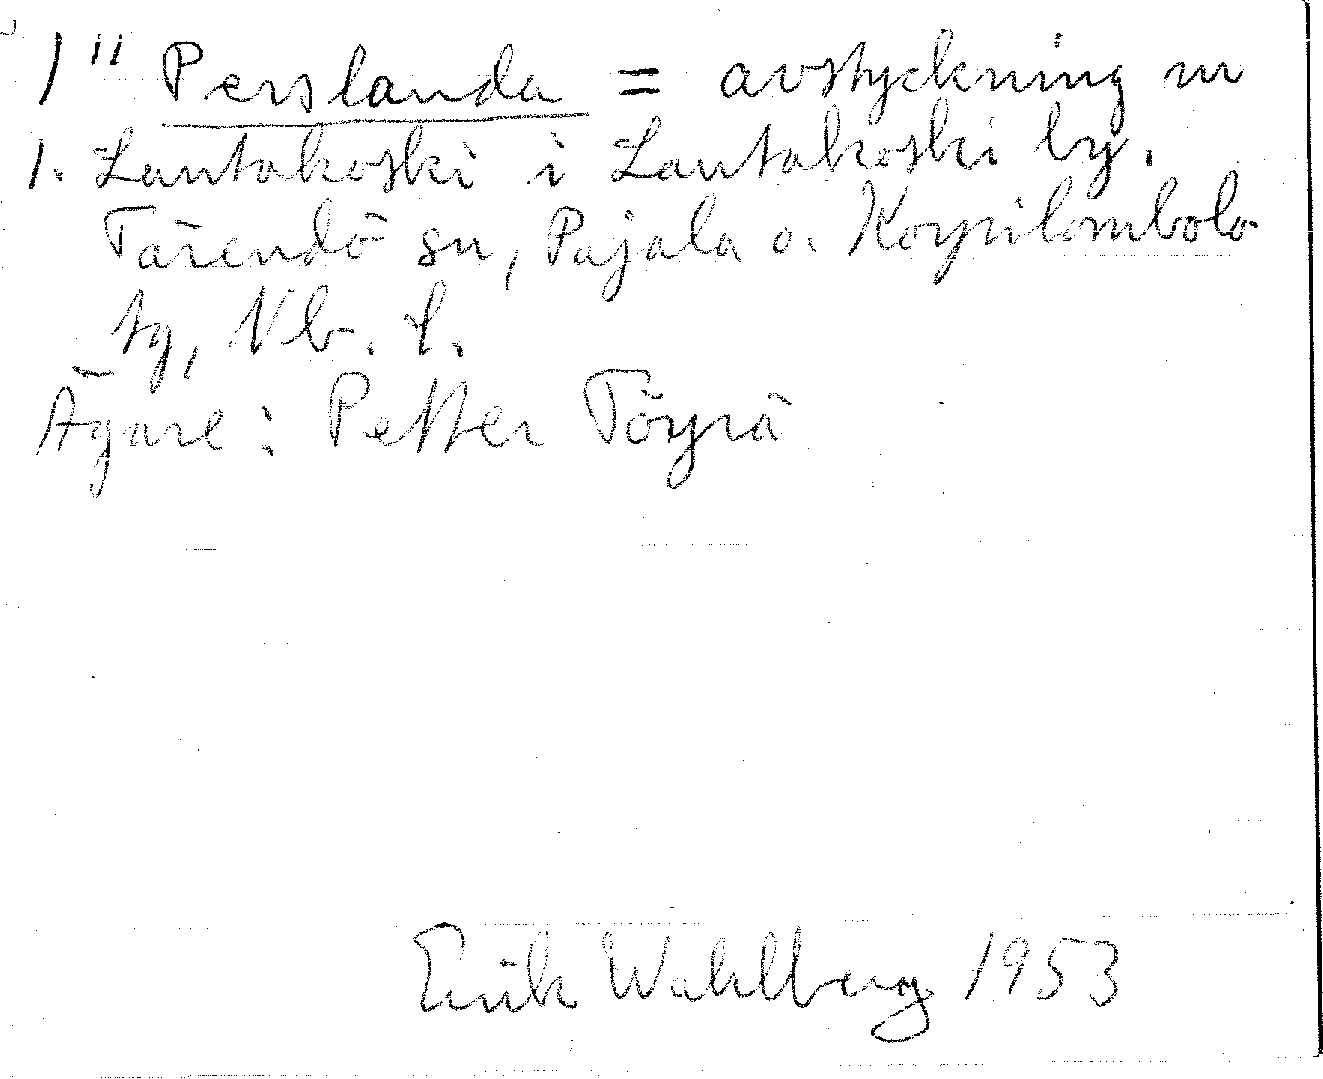 1" Perslanda = avstyckning nr
1. Lautakoski i Lautakoski by.
Tärendö sn, Pajala o. Korpilombolo
tg, Nb. l.
Ägare: Petter Töyrä
Erik Wahlberg 1953